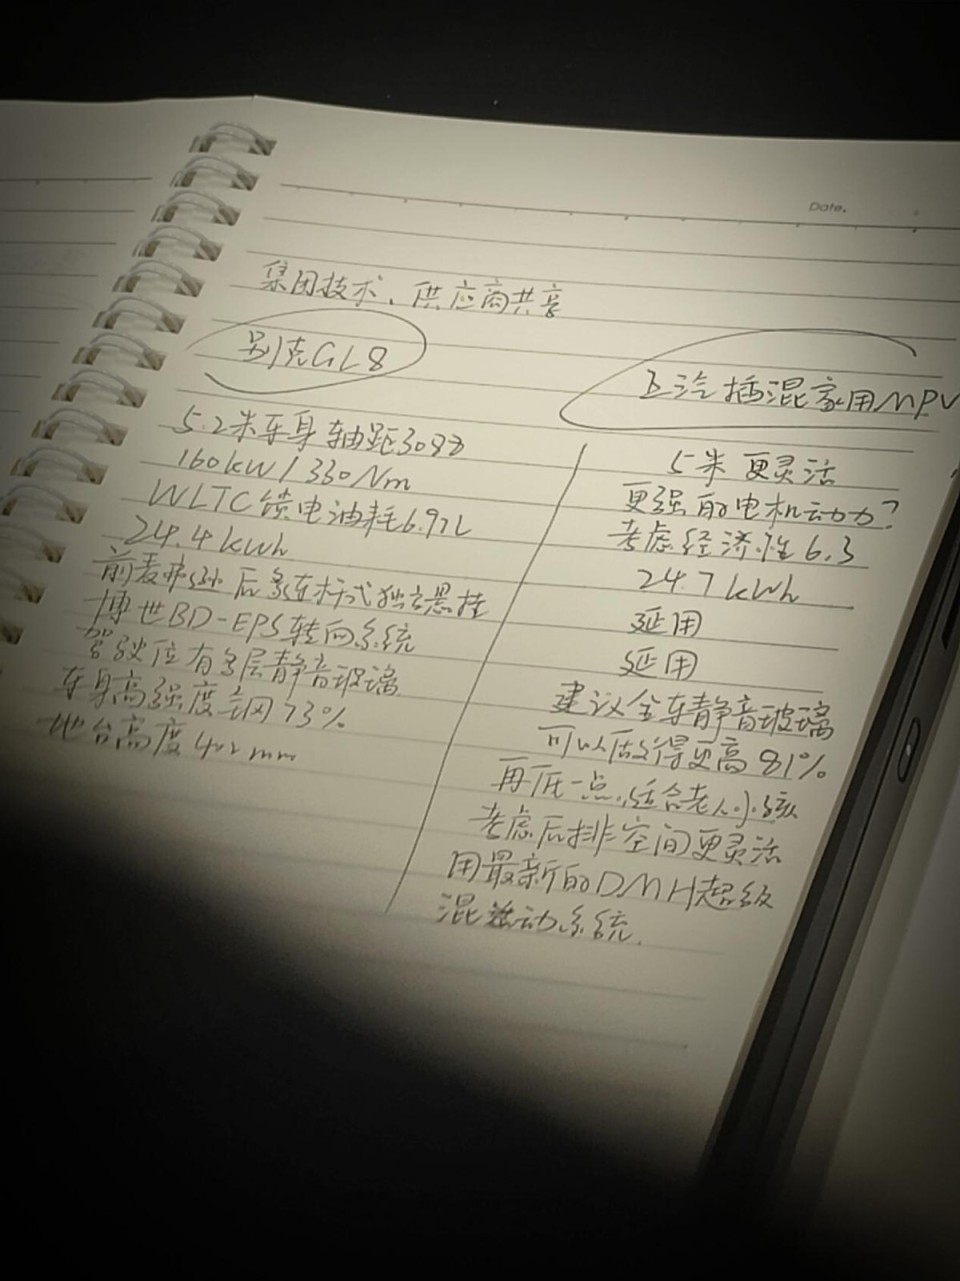 Date.
集团技术、供应商共享
别克GL8
5.2米车身 轴距3088
160kW/330Nm
WLTC馈电油耗6.97L
24.4kWh
前麦弗逊 后多连杆式独立悬挂
博世BD-EPS转向系统
驾驶位有多层静音玻璃
车身高强度钢73%
地台高度 mm
汽插混家用MPV
5米 更灵活
更强的电机动力?
考虑经济性6.3
24.7kWh
延用
延用
建议全车静音玻璃
可以做得更高81%
再低一点,适合老人小孩
考虑后排空间更灵活
用最新的DMH超级
混动系统.